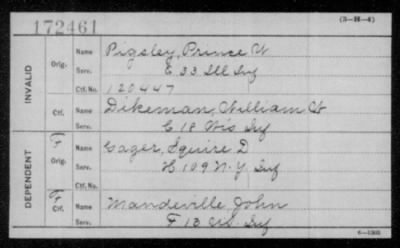 172461
(3-H-4)
INVALID
Orig.
Name Pigsley, Prince W
Serv. E 33 Ill Inf
Ctf. No. 120447
Ctf.
Name Dikeman, William W
Serv. C 18 Wis Inf
DEPENDENT
F
Orig.
Name Gager, Squire D
Serv. H 109 N.Y. Inf
Ctf. No.
F
Ctf.
Name Mandeville, John
Serv. F 13 Inf
6-1303